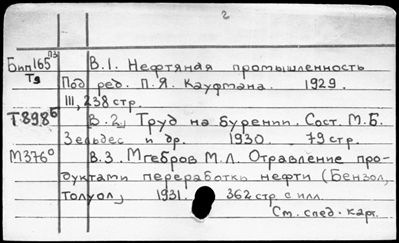 2
Бип165ПЗ В.1. Нефтяная промышленность
Т9 Под ред. П.Я. Кауфмана. 1929.
III, 238 стр.
Т898б В.2. Труд на бурении. Сост. М.Б.
Зельдес и др. 1930. 79 стр.
М376о В.3. Мгебров М.Л. Отравление про-
дуктами переработки нефти (Бензол,
Толуол) 1931. 362 стр. с илл.
См. след. карт.